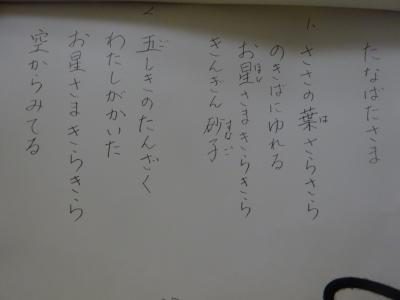 たなばたさま
1. ささの葉さらさら
のきばにゆれる
お星さまきらきら
きんぎん砂子
2. 五しきのたんざく
わたしがかいた
お星さまきらきら
空からみてる